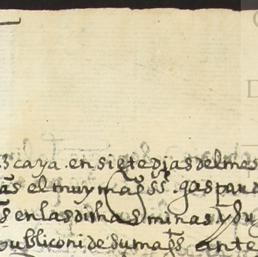 scaya. en siete dias del mes
as el muy mags s. gaspar d
s en las dichas minas y du
publico ni de su mag. ante